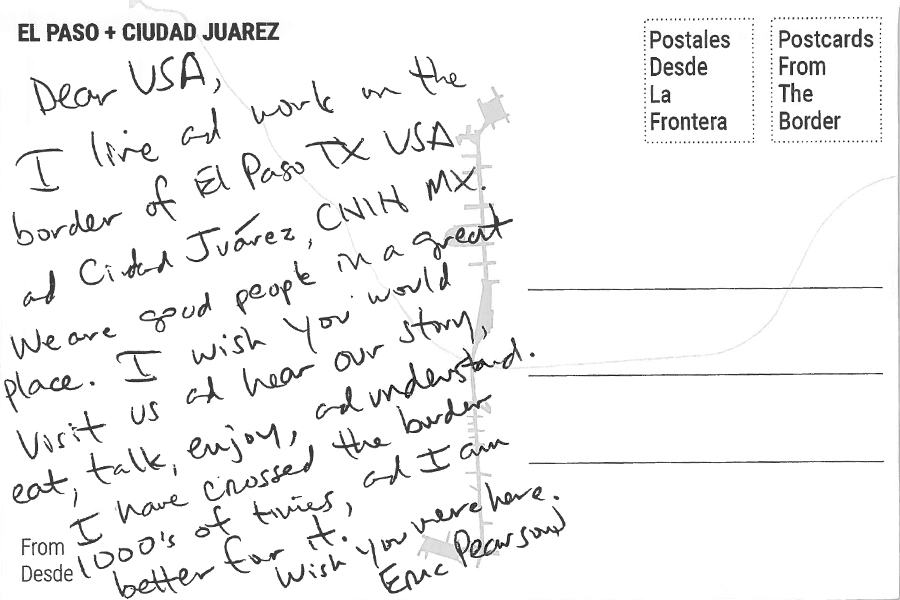 EL PASO + CIUDAD JUAREZ
Postales
Desde
La
Frontera
Postcards
From
The
Border
Dear USA,
I live ad work on the
border of El Paso TX USA
ad Ciudad Juárez, CNIH MX.
We are good people in a great
place. I wish you would
Visit us ad hear our story,
eat, talk, enjoy, ad understand.
I have crossed the border
1000's of times, ad I am
better for it.
Wish you were here.
Eric Pearson
From
Desde